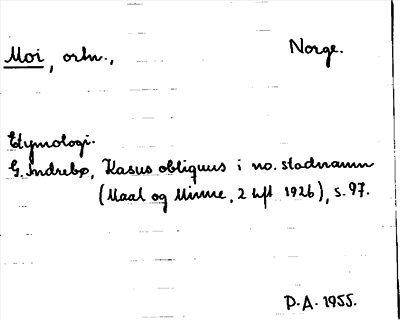 Moi, ortn., Norge.
Etymologi.
G. Indrebø, Kasus obliquus i no. stadnamn
(Maal og Minne, 2 hft 1926), s. 97.
P.A. 1955.